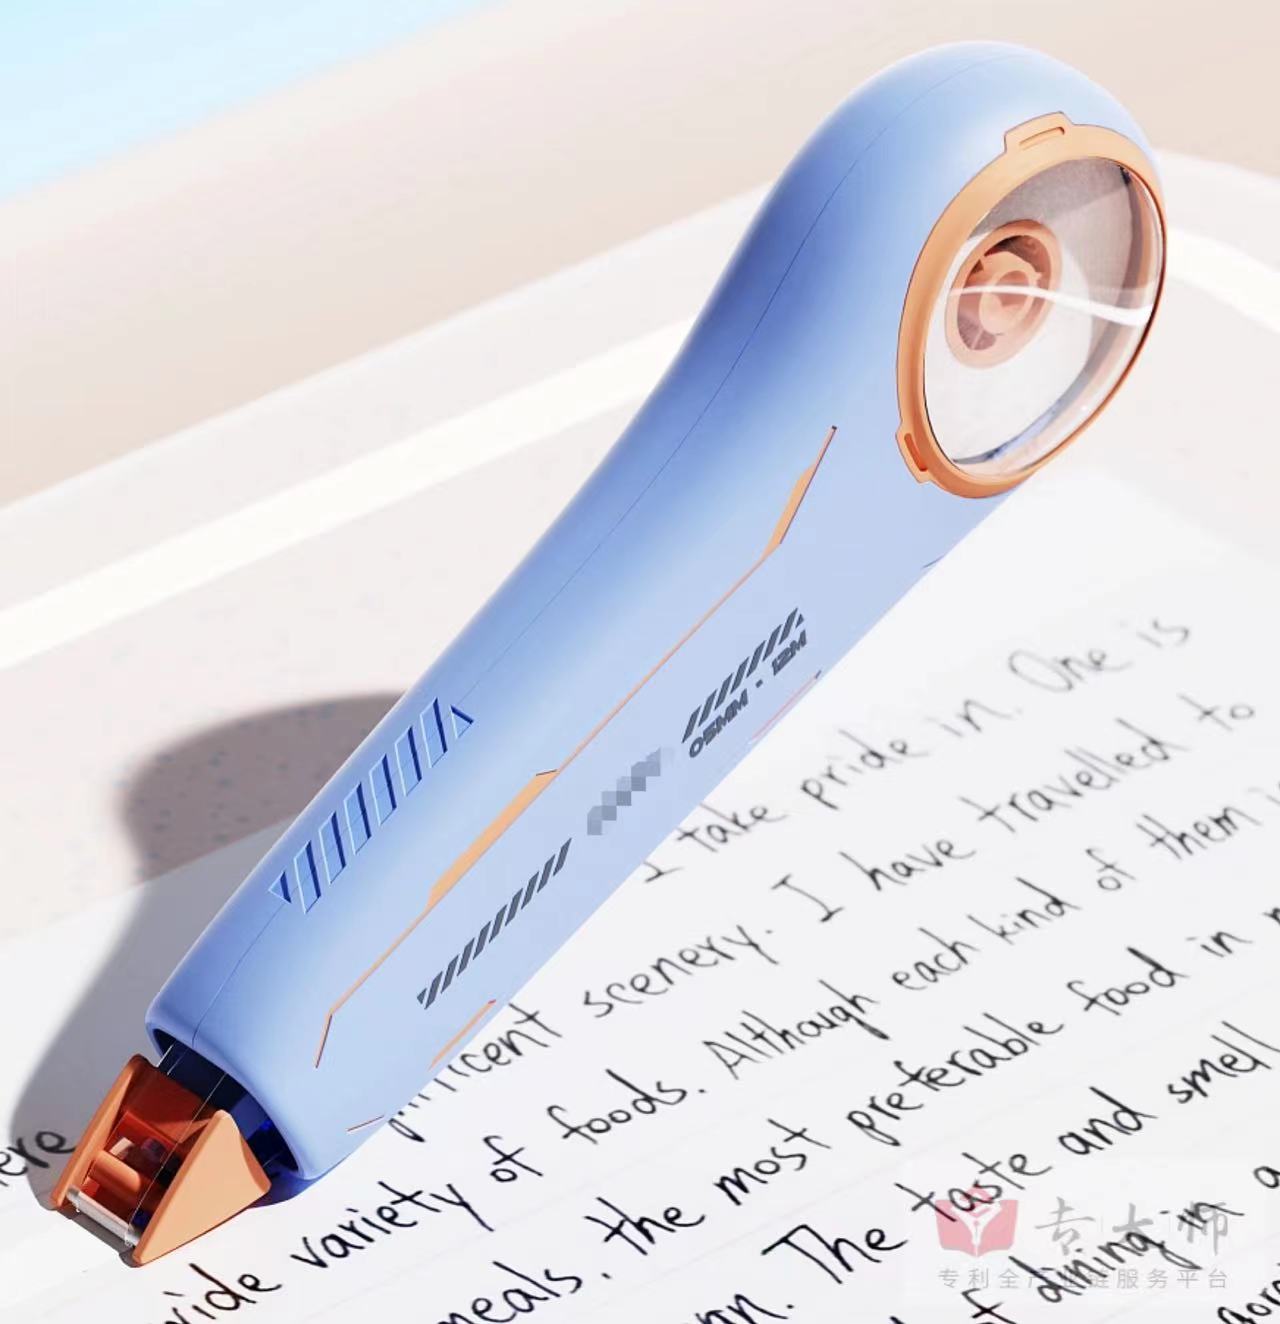 05MM · 12M
I take pride in. One is
scenery. I have travelled to
variety of foods. Although each kind of them
meals. the most preferable food in
The taste and smell
of dining in a
专大师
专利全产业链服务平台